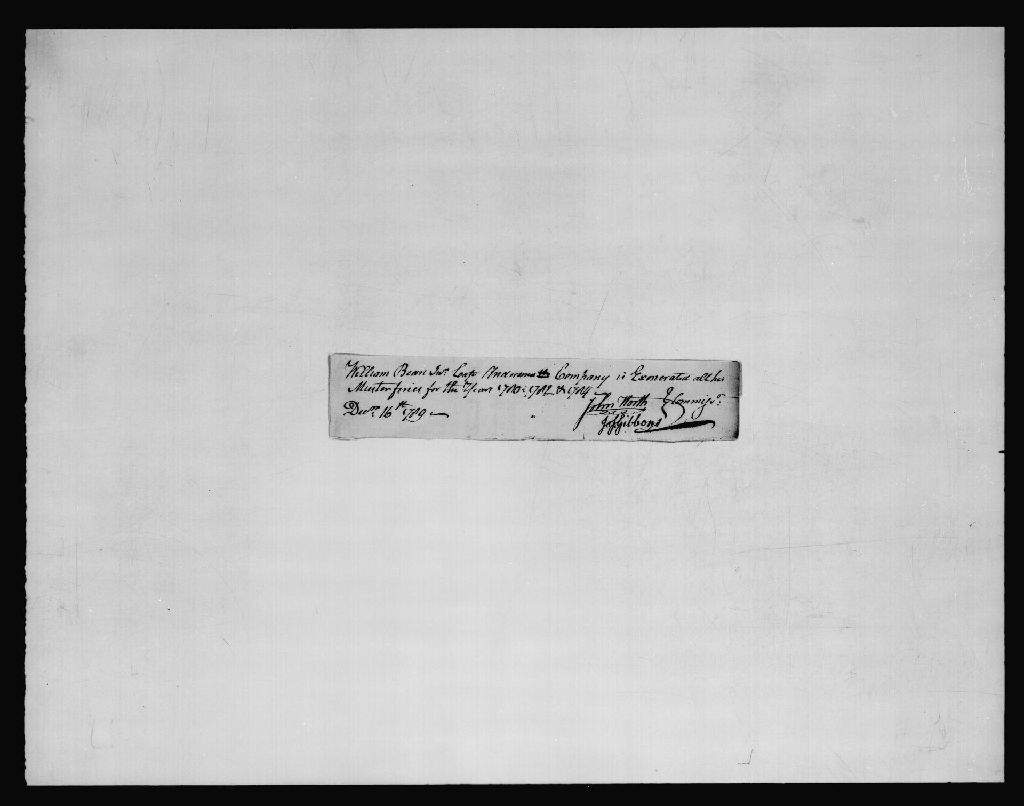 William Bean Junr. Capt Andersons Company is Exonerated all his
Muster fines for the Years 1780, 1782 & 1784
John Worth } Commissrs.
Decr. 16th 1789
Jas Gibbons